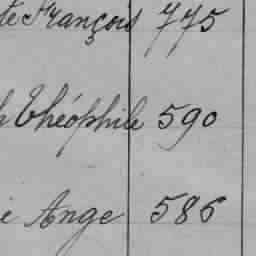 te François 775
h Théophile 590
e Ange 586